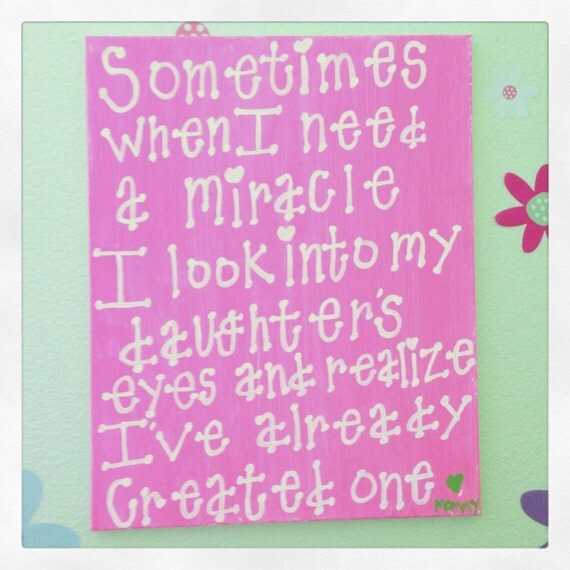 Sometimes
when I need
a miracle
I look into my
daughter's
eyes and realize
I've already
Created one
mommy